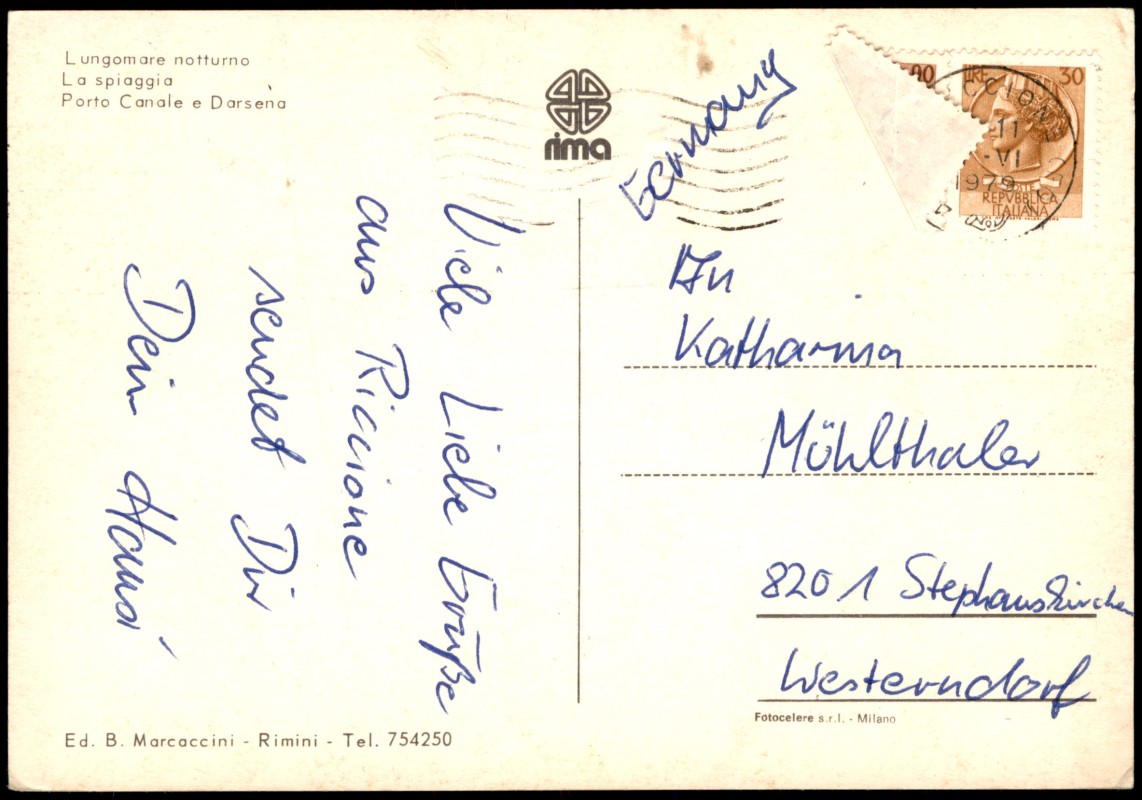 Lungomare notturno
La spiaggia
Porto Canale e Darsena
rima
Germany
LIRE 30
00
RICCIONE
11
-VI
1979
POSTE
REPVBBLICA
ITALIANA
Viele Liebe Grüße
aus Riccione
sendet Dir
Dein Hansi
An
Katharina
Mühlthaler
8201 Stephanskirchen
Westerndorf
Fotocelere s.r.l. - Milano
Ed. B. Marcaccini - Rimini - Tel. 754250